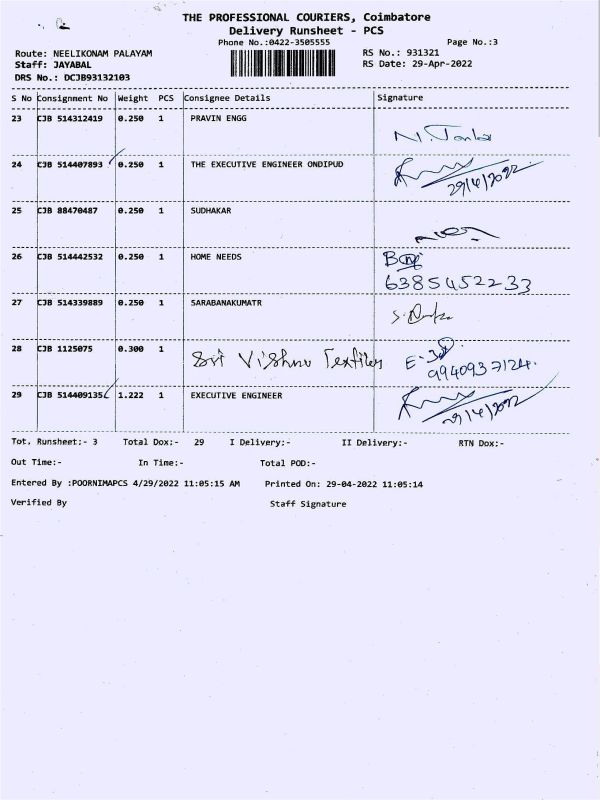 THE PROFESSIONAL COURIERS, Coimbatore
Delivery Runsheet - PCS
Phone No.:0422-3505555 Page No.:3
Route: NEELIKONAM PALAYAM RS No.: 931321
Staff: JAYABAL RS Date: 29-Apr-2022
DRS No.: DCJB93132103
S No Consignment No Weight PCS Consignee Details Signature
23 CJB 514312419 0.250 1 PRAVIN ENGG
24 CJB 514407893 0.250 1 THE EXECUTIVE ENGINEER ONDIPUD
29/4/2022
25 CJB 88470487 0.250 1 SUDHAKAR
26 CJB 514442532 0.250 1 HOME NEEDS
6385452233
27 CJB 514339889 0.250 1 SARABANAKUMATR
28 CJB 1125075 0.300 1 Sri Vishnu Textiles
9940937124.
29 CJB 514409135 1.222 1 EXECUTIVE ENGINEER
29/4/2022
Tot. Runsheet:- 3 Total Dox:- 29 I Delivery:- II Delivery:- RTN Dox:-
Out Time:- In Time:- Total POD:-
Entered By :POORNIMAPCS 4/29/2022 11:05:15 AM Printed On: 29-04-2022 11:05:14
Verified By Staff Signature